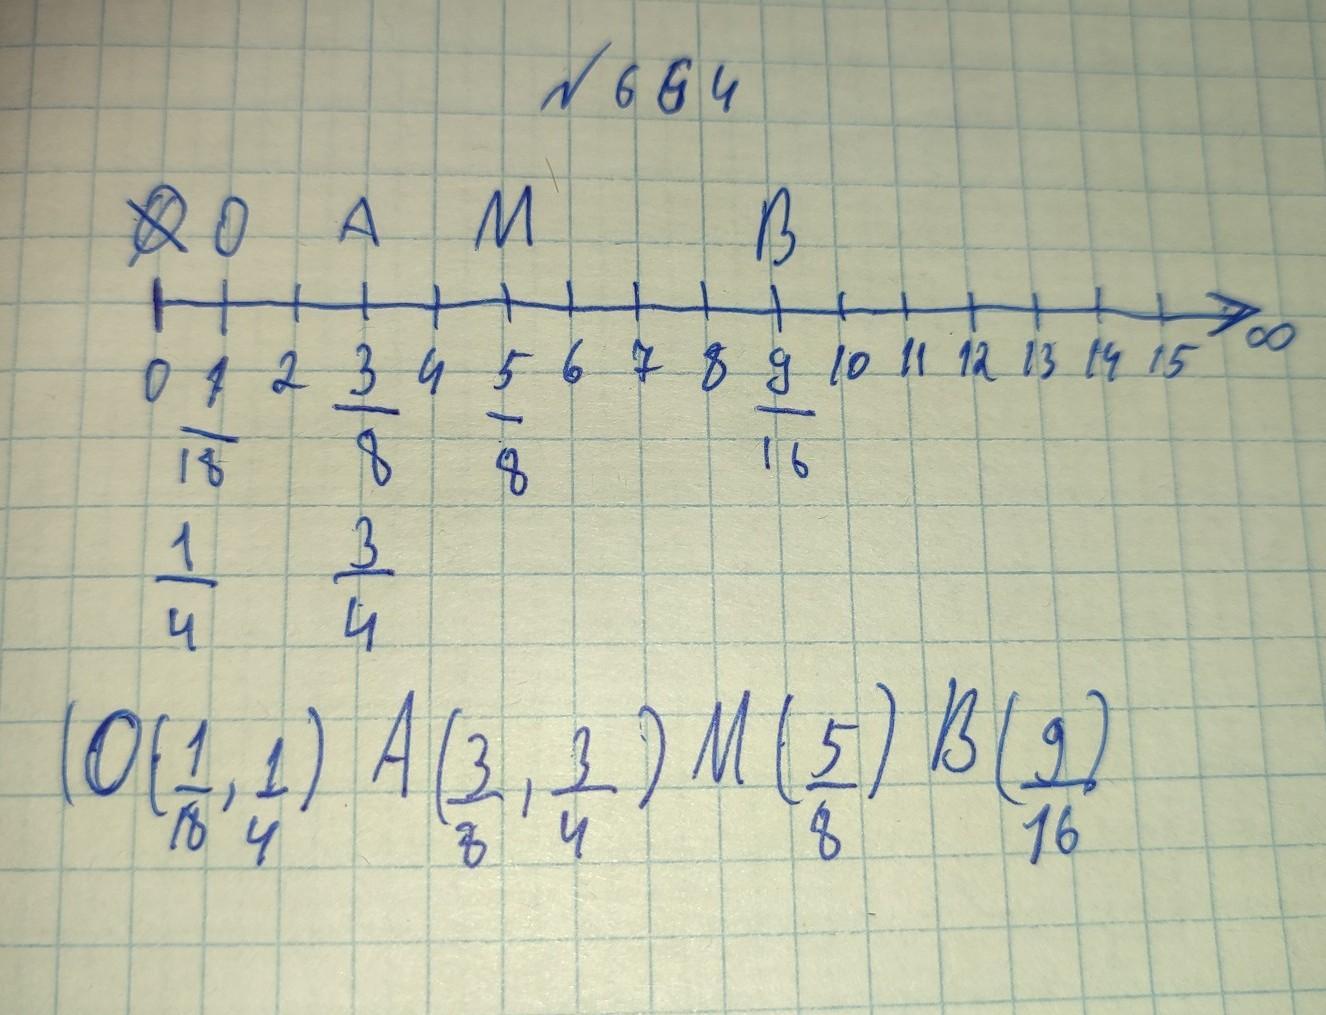 № 664
O O A M B
0 1 2 3 4 5 6 7 8 9 10 11 12 13 14 15 ∞
18 8 8 16
1 3
4 4
(O(1/18, 1/4) A(3/8, 3/4) M(5/8) B(9/16)